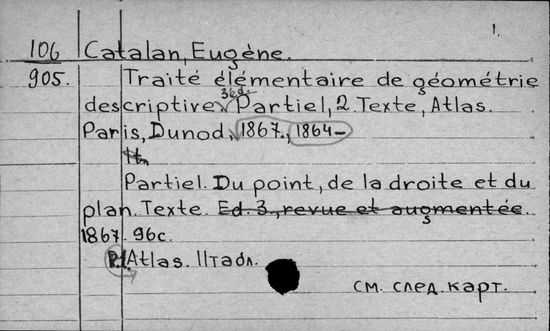 1.
106 Catalan, Eugène.
905. Traité élémentaire de géométrie
3éd.
descriptive. Partie 1, 2. Texte, Atlas.
Paris, Dunod, 1867., 1864–
Partie 1. Du point, de la droite et du
plan. Texte. Ed. 3, revue et augmentée.
1867. 96c.
P.1. Atlas. 11табл.
см. след. карт.